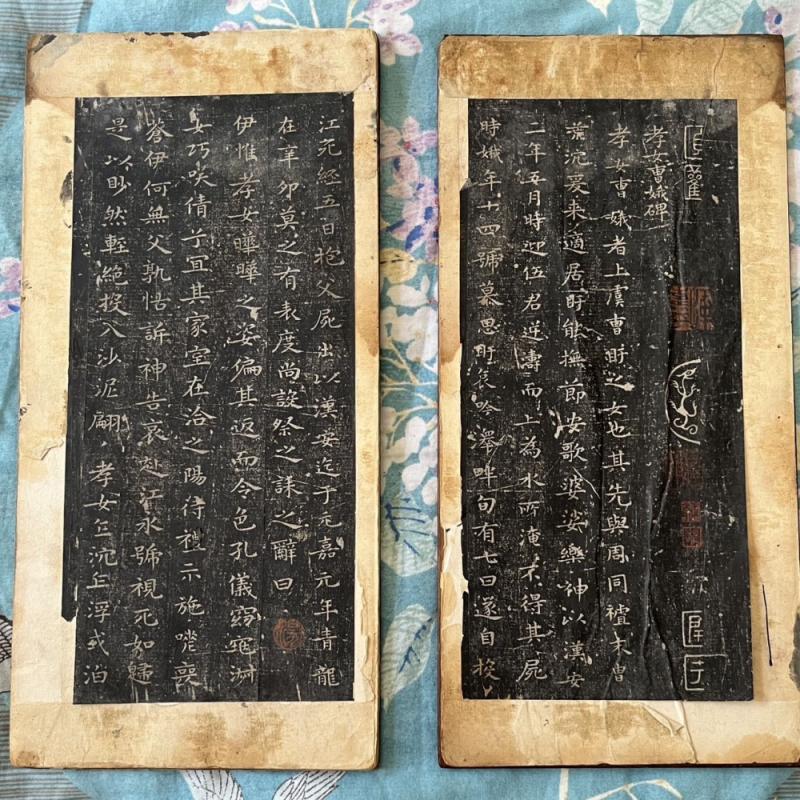 孝女曹娥碑
孝女曹娥者上虞曹盱之女也其先與周同禮末胄
荒沉爰来適居盱能撫節安歌婆娑樂神以漢安
二年五月時迎伍君逆濤而上為水所淹不得其屍
時娥年十四號慕思盱哀吟澤畔旬有七日遂自投
江死經五日抱父屍出以漢安迄于元嘉元年青龍
在辛卯莫之有表度尚設祭之誄之辭曰
伊惟孝女曄曄之姿偏其返而令色孔儀窈窕淑
女巧咲倩兮宜其家室在洽之陽待禮未施嗟喪
蒼伊何無父孰怙訴神告哀赴江永號視死如歸
是以眇然輕絕投入沙泥翩〻孝女乍沉乍浮或泊